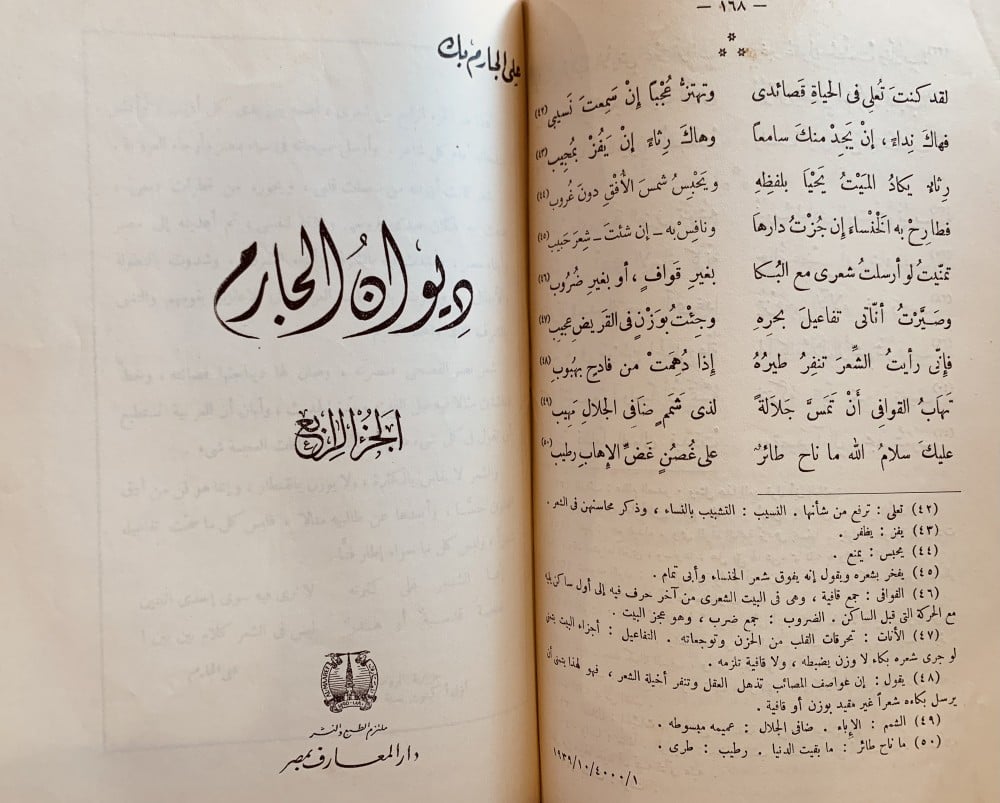 — ١٦٨ —
* * *
لقد كنتَ تُعلِى فى الحياةِ قصائدى وتهتزُّ عُجْبًا إنْ سَمِعتَ نَسِيبى (٤٢)
فهاكَ نِداءً ، إنْ يَجِدْ منكَ سامعاً وهاكَ رِثاءً إنْ يَفُزْ بمُجِيبِ (٤٣)
رِثاءٌ يكادُ المَيْتُ يَحْيَا بلفظِهِ ويَحْبِسُ شمسَ الأُفْقِ دونَ غُروبِ (٤٤)
فطارِحْ به الخَنْساءَ إن جُزْتَ دارها ونافِسْ به ــ إن شئتَ ــ شِعرَ حَبيبِ (٤٥)
تمنّيتُ لو أرسلتُ شعرى مع البُكا بغيرِ قَوافٍ ، أو بغيرِ ضُرُوبِ (٤٦)
وصَيَّرْتُ أنّاتى تفاعيلَ بحرِهِ وجِئْتُ بوَزْنٍ فى القَريضِ عجيبِ (٤٧)
فإنّى رأيتُ الشِّعرَ تنفِرُ طيرُهُ إذا دُهِمَتْ من فادحٍ بهُبوبِ (٤٨)
تهابُ القوافى أنْ تمَسَّ جَلالةً لذى شَممٍ ضَافِى الجلالِ مَهِيبِ (٤٩)
عليكَ سلامُ الله ما ناح طائرٌ على غُصُنٍ غَضِّ الإهابِ رطيبِ (٥٠)
(٤٢) تعلى : ترفع من شأنها . النسيب : التشبيب بالنساء ، وذكر محاسنهن فى الشعر .
(٤٣) يفز : يظفر .
(٤٤) يحبس : يمنع .
(٤٥) يفخر بشعره ويقول إنه يفوق شعر الخنساء وأبى تمام .
(٤٦) القوافى : جمع قافية ، وهى فى البيت الشعرى من آخر حرف فيه إلى أول ساكن يليه
مع الحركة التى قبل الساكن . الضروب : جمع ضرب ، وهو عجز البيت .
(٤٧) الأنات : تحرقات القلب من الحزن وتوجعاته . التفاعيل : أجزاء البيت يتمنى
لو جرى شعره بكاء لا وزن يضبطه ، ولا قافية تلزمه .
(٤٨) يقول : إن عواصف المصائب تذهل العقل وتنفر أخيلة الشعر ، فهو لهذا يتمنى أن
يرسل بكاءه شعراً غير مقيد بوزن أو قافية .
(٤٩) الشمم : الإباء . ضافى الجلال : عميمه مبسوطه .
(٥٠) ما ناح طائر : ما بقيت الدنيا . رطيب : طرى .
١٩٣٩/١٠/٤٠٠٠/١
على الجارم بك
ديوانُ الجارم
الجزءُ الرابع
ملتزم الطبع والنشر
دار المعارف بمصر